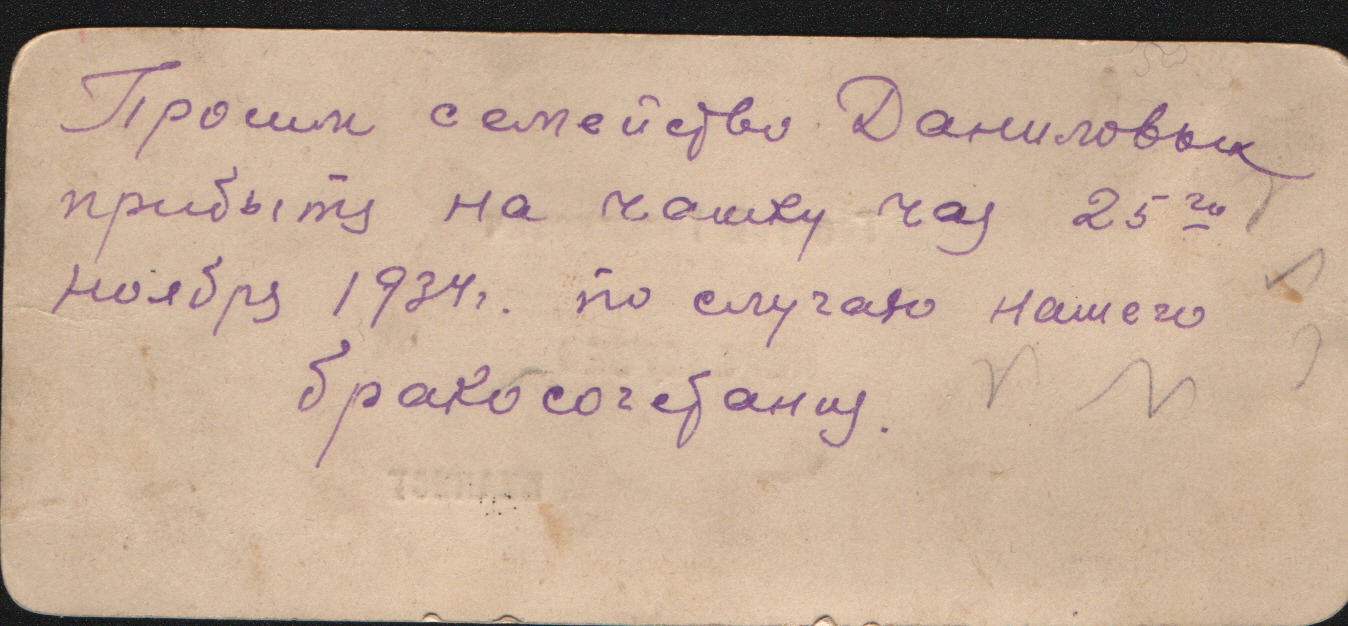 Просим семейство Даниловых
прибыть на чашку чая 25го
ноября 1934г. по случаю нашего
бракосочетания.